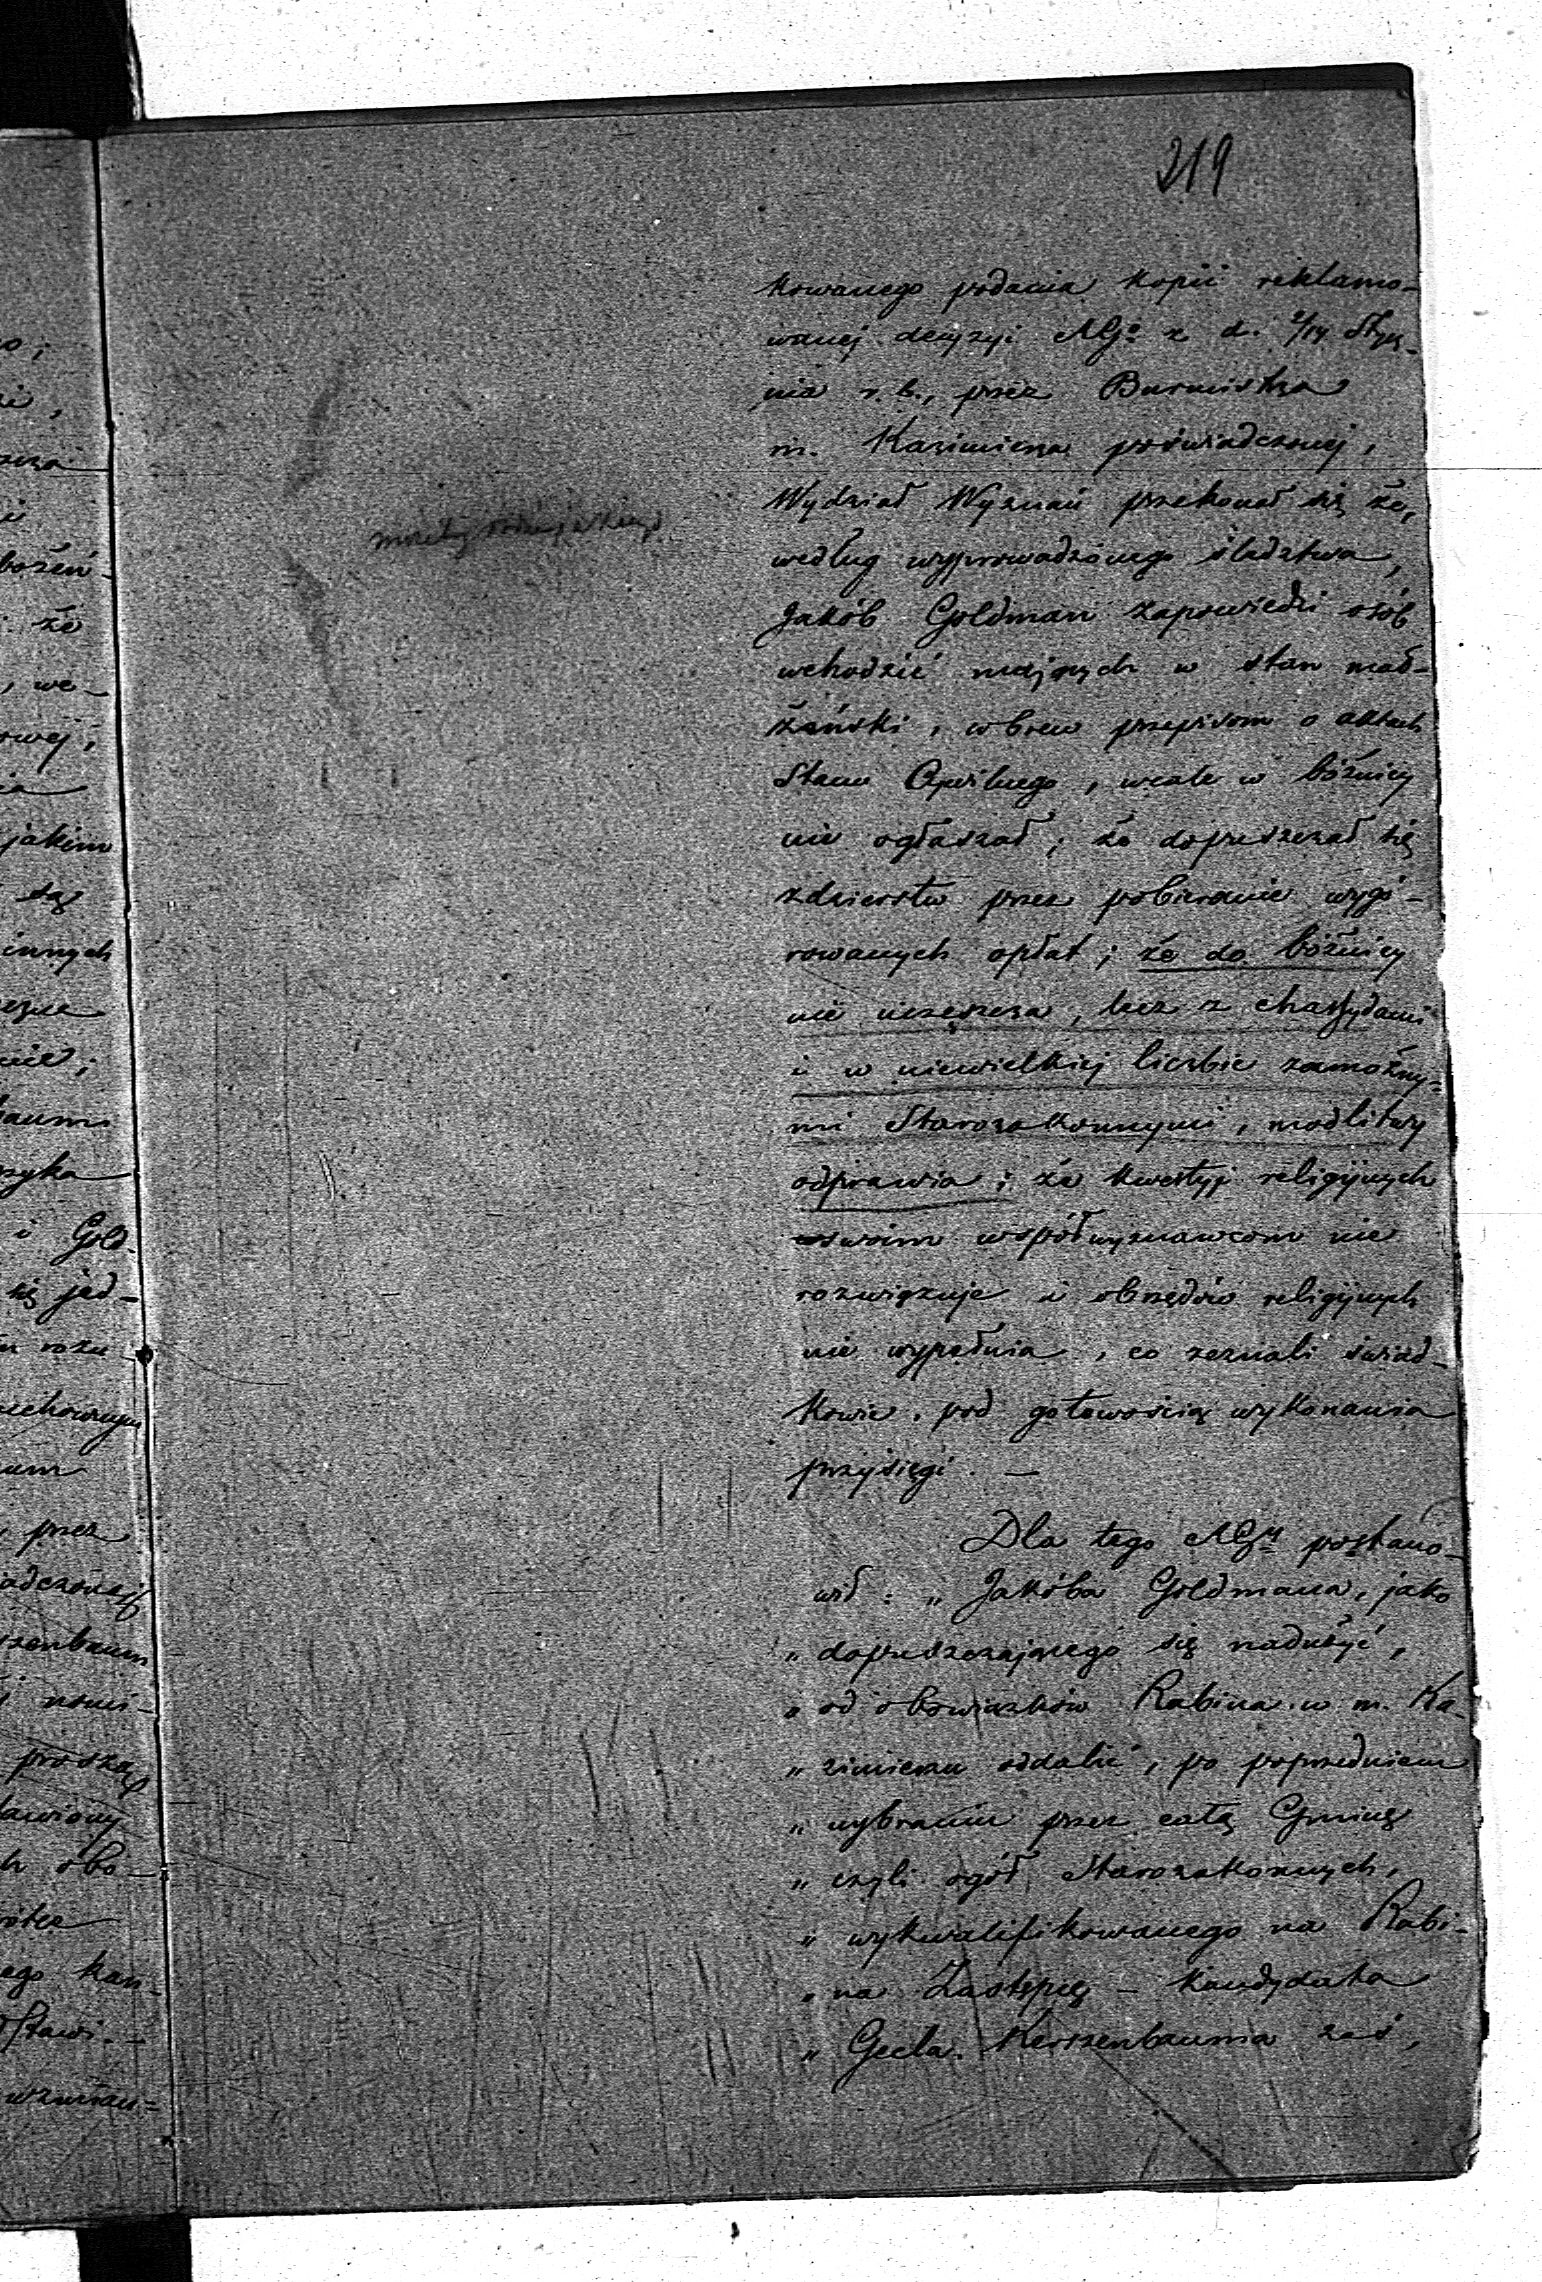 219
kowanego podania kopii reklamo-
wanej decyzyi NGo z d. 2/14 Stycz-
nia r. b., przez Burmistrza
m. Kazimierza poświadczonej,
Wydział Wyznań przekonał się że,
według wyprowadzonego śledztwa,
Jakób Goldman zapowiedzi osób
wchodzić mających w stan mał-
żeński, wbrew przepisom o aktach
Stanu Cywilnego, wcale w bóżnicy
nie ogłaszał; że dopuszczał się
zdzierstw przez pobieranie wygó-
rowanych opłat; że do bóżnicy
nie uczęszcza, lecz z chassydami
i w niewielkiej liczbie zamożny-
mi Starozakonnymi, modlitwy
odprawia; że kwestyj religijnych
swoim współwyznawcom nie
rozwiązuje i obrzędów religijnych
nie wypełnia, co zeznali świad-
kowie, pod gotowością wykonania
przysięgi. —
Dla tego NGy postano-
wił: „Jakóba Goldmana, jako
„dopuszczającego się nadużyć,
„od obowiązków Rabina w m. Ka-
„zimierzu oddalić, po poprzedniem
„wybraniu przez całą Gminę
„czyli ogół Starozakonnych,
„wykwalifikowanego na Rabi-
„na Zastępcę – kandydata
„Gecla Kerszenbauma zaś,
o;
że
, we-
owej;
jakim
są
innych
nie;
baum
i Gold-
się jed-
przez
szenbaum
i nomi-
proszą
obo-
ego kan-